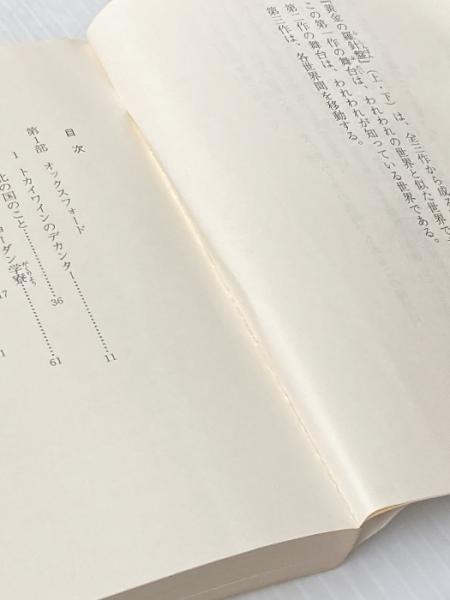 『黄金の羅針盤』（上・下）は、全三作から成る
この第一作の舞台は、われわれの世界と似た世界で
第二作の舞台は、われわれが知っている世界である。
第三作は、各世界間を移動する。
目次
第Ⅰ部 オックスフォード
1 トカイワインのデカンター 11
ョーダン学寮 36
北の国のこと 61